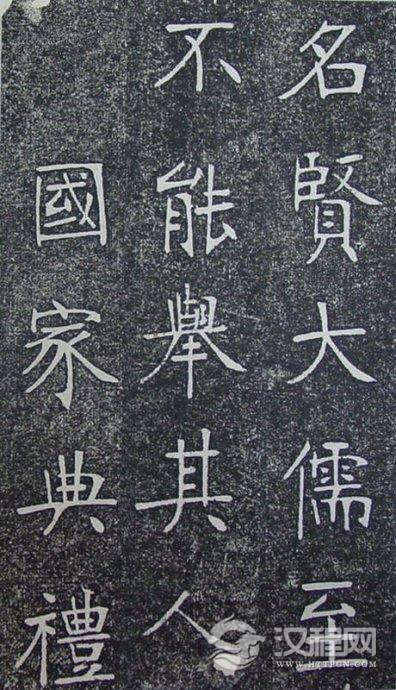 名賢大儒至
不能舉其人
國家典禮
汉程网
WWW.HTTPCN.COM